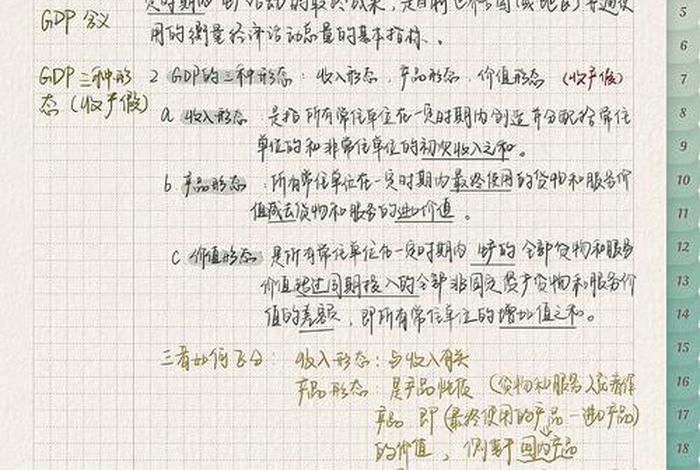 GDP 含义
定时期内 生产活动的最终成果，是目前世界各国(或地区)普遍使
用的衡量经济活动总量的基本指标。
GDP三种形
态（收产假）
2 GDP的三种形态：收入形态，产品形态，价值形态 （收产假）
a 收入形态：是指所有常住单位在一定时期内创造并分配给常住
单位的和非常住单位的初次收入之和。
b 产品形态：所有常住单位在一定时期内最终使用的货物和服务价
值减去货物和服务的进口价值。
c 价值形态：是所有常住单位在一定时期内 生产的全部货物和服务
价值超过同期投入的全部非固定资产货物和服务价
值的差额，即所有常住单位的增加值之和。
三者如何区分：收入形态：与收入有关
产品形态：是产品性质（货物和服务）
产品 即（最终使用的产品－进口产品）
的价值，侧重于国内产品
5
6
7
8
9
10
11
12
13
14
15
16
17
18